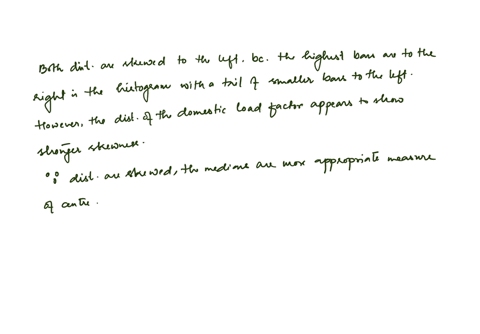 Both dist. are skewed to the left. bc. the highest bars are to the
right in the histogram with a tail of smaller bars to the left.
However, the dist. of the domestic load factor appears to show
stronger skewness.
∵ dist. are skewed, the medians are more appropriate measure
of centre.